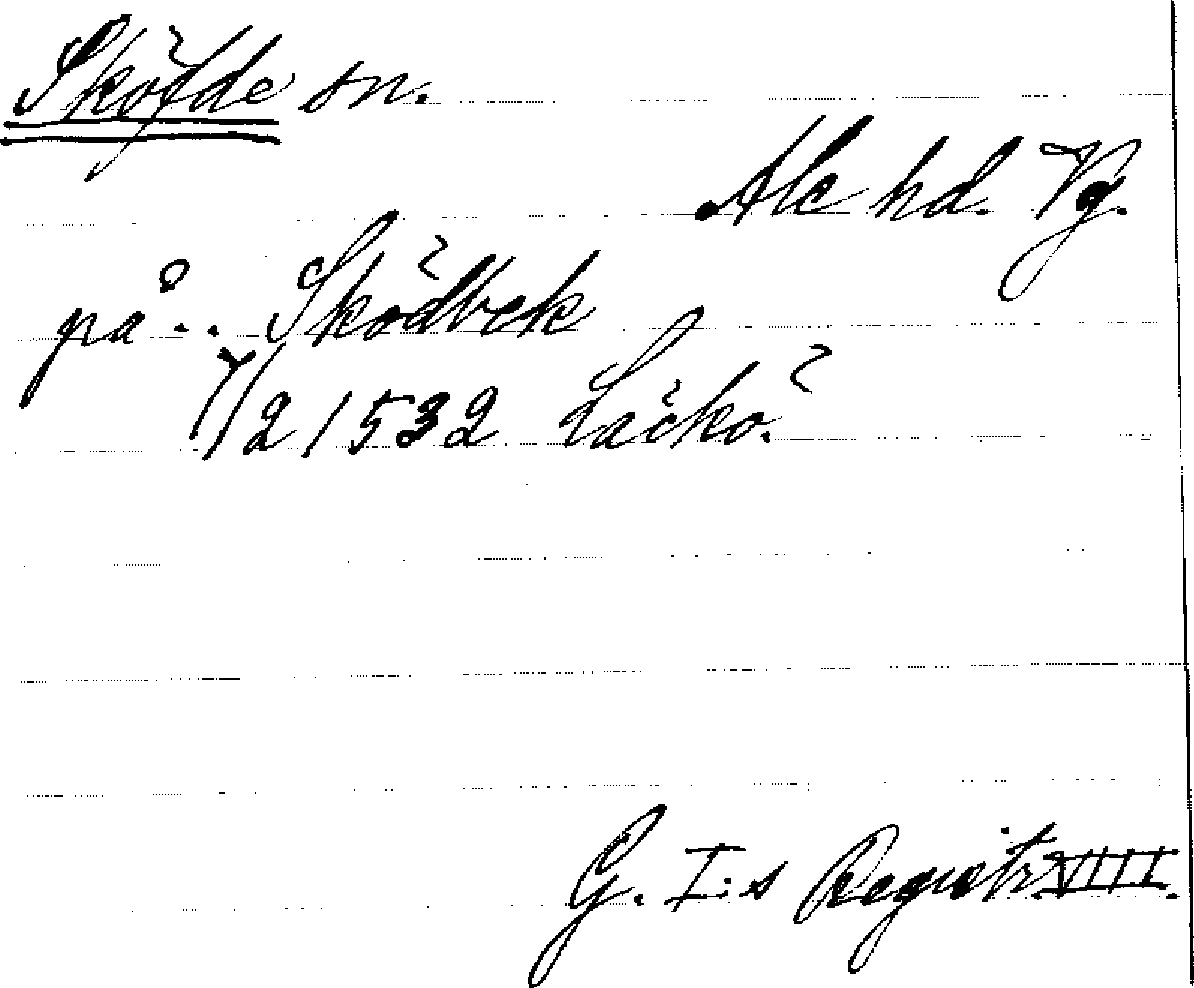 Sköfde sn.
Ale hd. Vg.
på.. Sködbek
7/2 1532 Läckö.
G. I:s Registr. VIII.